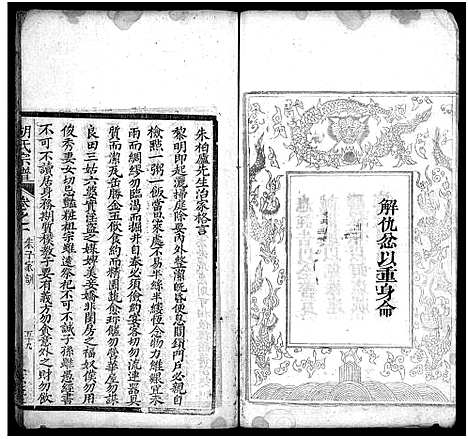 解仇忿以重身命
朱柏廬先生治家格言
黎明即起灑掃庭除要內外整潔既昏便息關鎖門戶必親自
檢點一粥一飯當思來處不易半絲半縷恆念物力維艱宜未
雨而綢繆勿臨渴而掘井自奉必須儉約宴客切勿流連器具
質而潔瓦缶勝金玉飲食約而精園蔬愈珍饈勿營華屋勿謀
良田三姑六婆實淫盜之媒婢美妾嬌非閨房之福奴僕勿用
俊秀妻女切忌豔粧祖宗雖遠祭祀不可不誠子孫雖愚經書
不可不讀居身務期質樸教子要有義方勿貪意外之財勿飲
胡氏宗譜
卷之二
朱子家訓
五十九